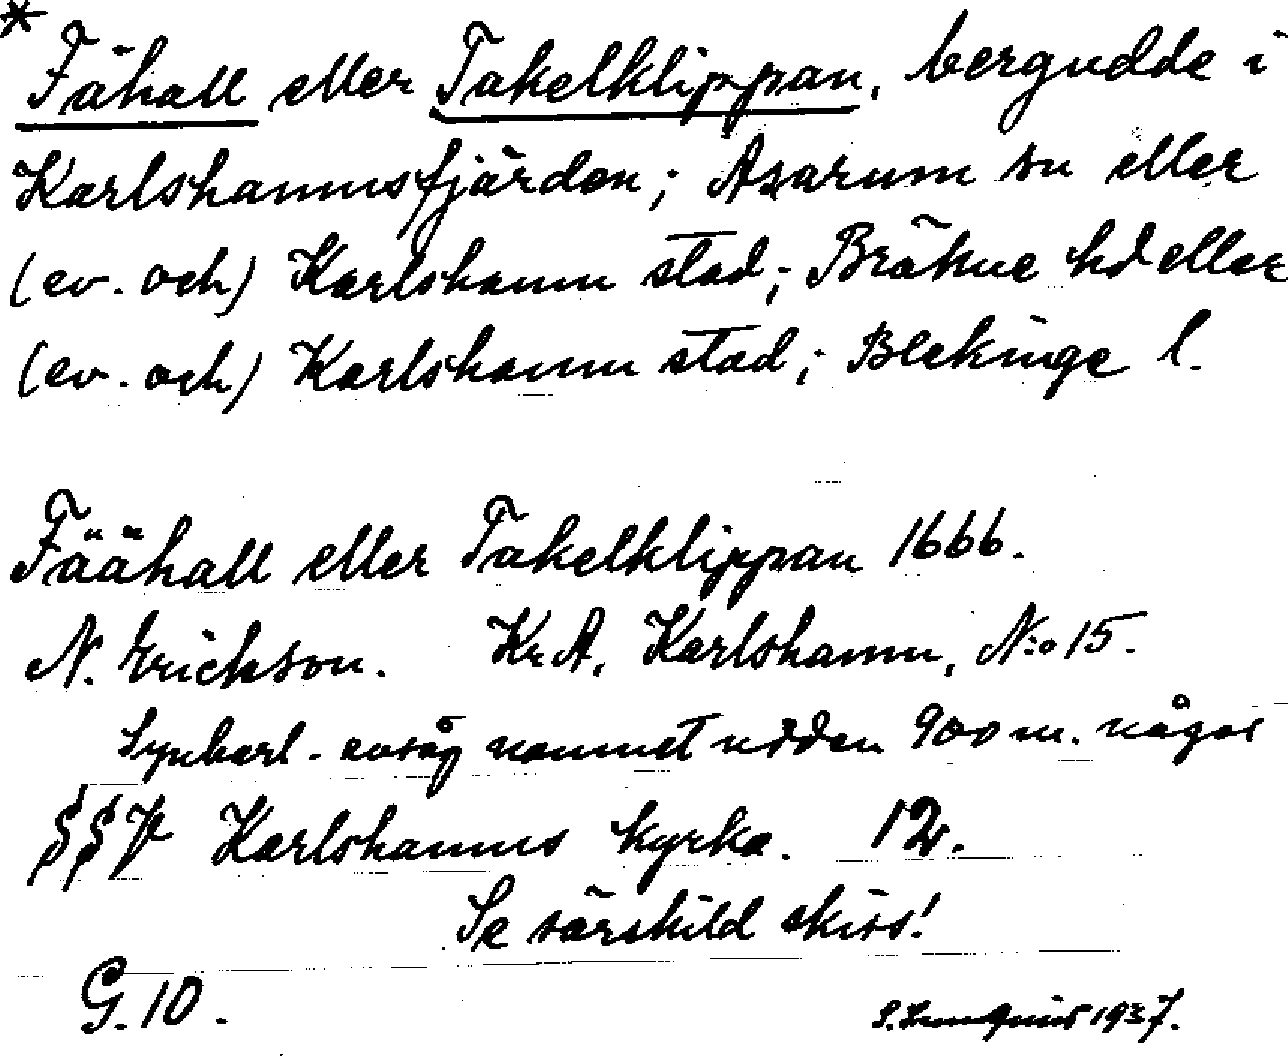 * Fähall eller Takelklippan, bergudde i
Karlshamnsfjärden; Asarum sn eller
(ev. och) Karlshamn stad; Bräkne hd eller
(ev. och) Karlshamn stad; Blekinge l.
Fäähall eller Takelklippan 1666.
N. Erickson. KrA, Karlshamn, N:o 15.
Synbarl. avsåg namnet udden 900 m. något
§§V Karlshamns kyrka. 12.
Se särskild skiss!
G. 10.
1937.